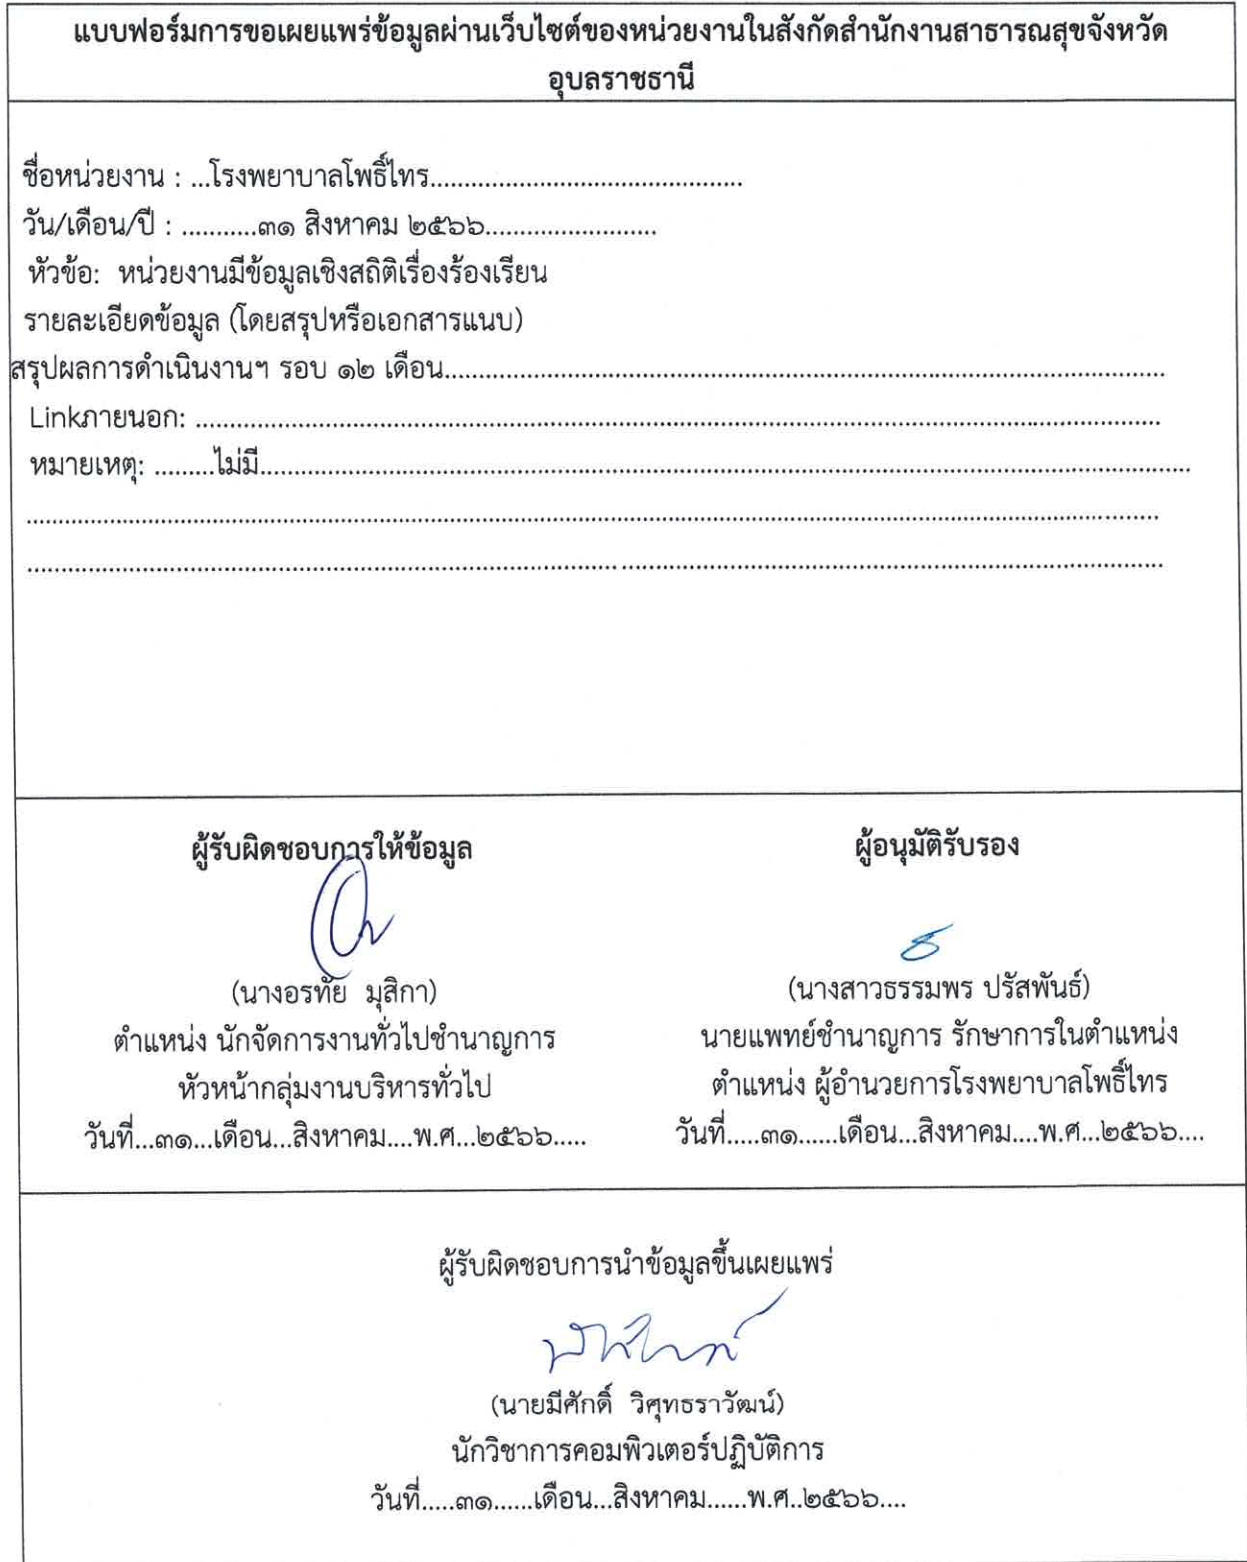 แบบฟอร์มการขอเผยแพร่ข้อมูลผ่านเว็บไซต์ของหน่วยงานในสังกัดสำนักงานสาธารณสุขจังหวัด
อุบลราชธานี
ชื่อหน่วยงาน : ...โรงพยาบาลโพธิ์ไทร..............................................
วัน/เดือน/ปี : ...........๓๑ สิงหาคม ๒๕๖๖.........................
หัวข้อ: หน่วยงานมีข้อมูลเชิงสถิติเรื่องร้องเรียน
รายละเอียดข้อมูล (โดยสรุปหรือเอกสารแนบ)
สรุปผลการดำเนินงานฯ รอบ ๑๒ เดือน..........................................................................................................
Linkภายนอก: ..............................................................................................................................................
หมายเหตุ: .........ไม่มี.........................................................................................................................................
......................................................................................................................................................................
......................................................................................................................................................................
ผู้รับผิดชอบการให้ข้อมูล
(นางอรทัย มุสิกา)
ตำแหน่ง นักจัดการงานทั่วไปชำนาญการ
หัวหน้ากลุ่มงานบริหารทั่วไป
วันที่...๓๑...เดือน...สิงหาคม....พ.ศ...๒๕๖๖.....
ผู้อนุมัติรับรอง
(นางสาวธรรมพร ปรัสพันธ์)
นายแพทย์ชำนาญการ รักษาการในตำแหน่ง
ตำแหน่ง ผู้อำนวยการโรงพยาบาลโพธิ์ไทร
วันที่.....๓๑......เดือน...สิงหาคม....พ.ศ...๒๕๖๖....
ผู้รับผิดชอบการนำข้อมูลขึ้นเผยแพร่
(นายมีศักดิ์ วิศุทธราวัฒน์)
นักวิชาการคอมพิวเตอร์ปฏิบัติการ
วันที่.....๓๑......เดือน...สิงหาคม......พ.ศ..๒๕๖๖....